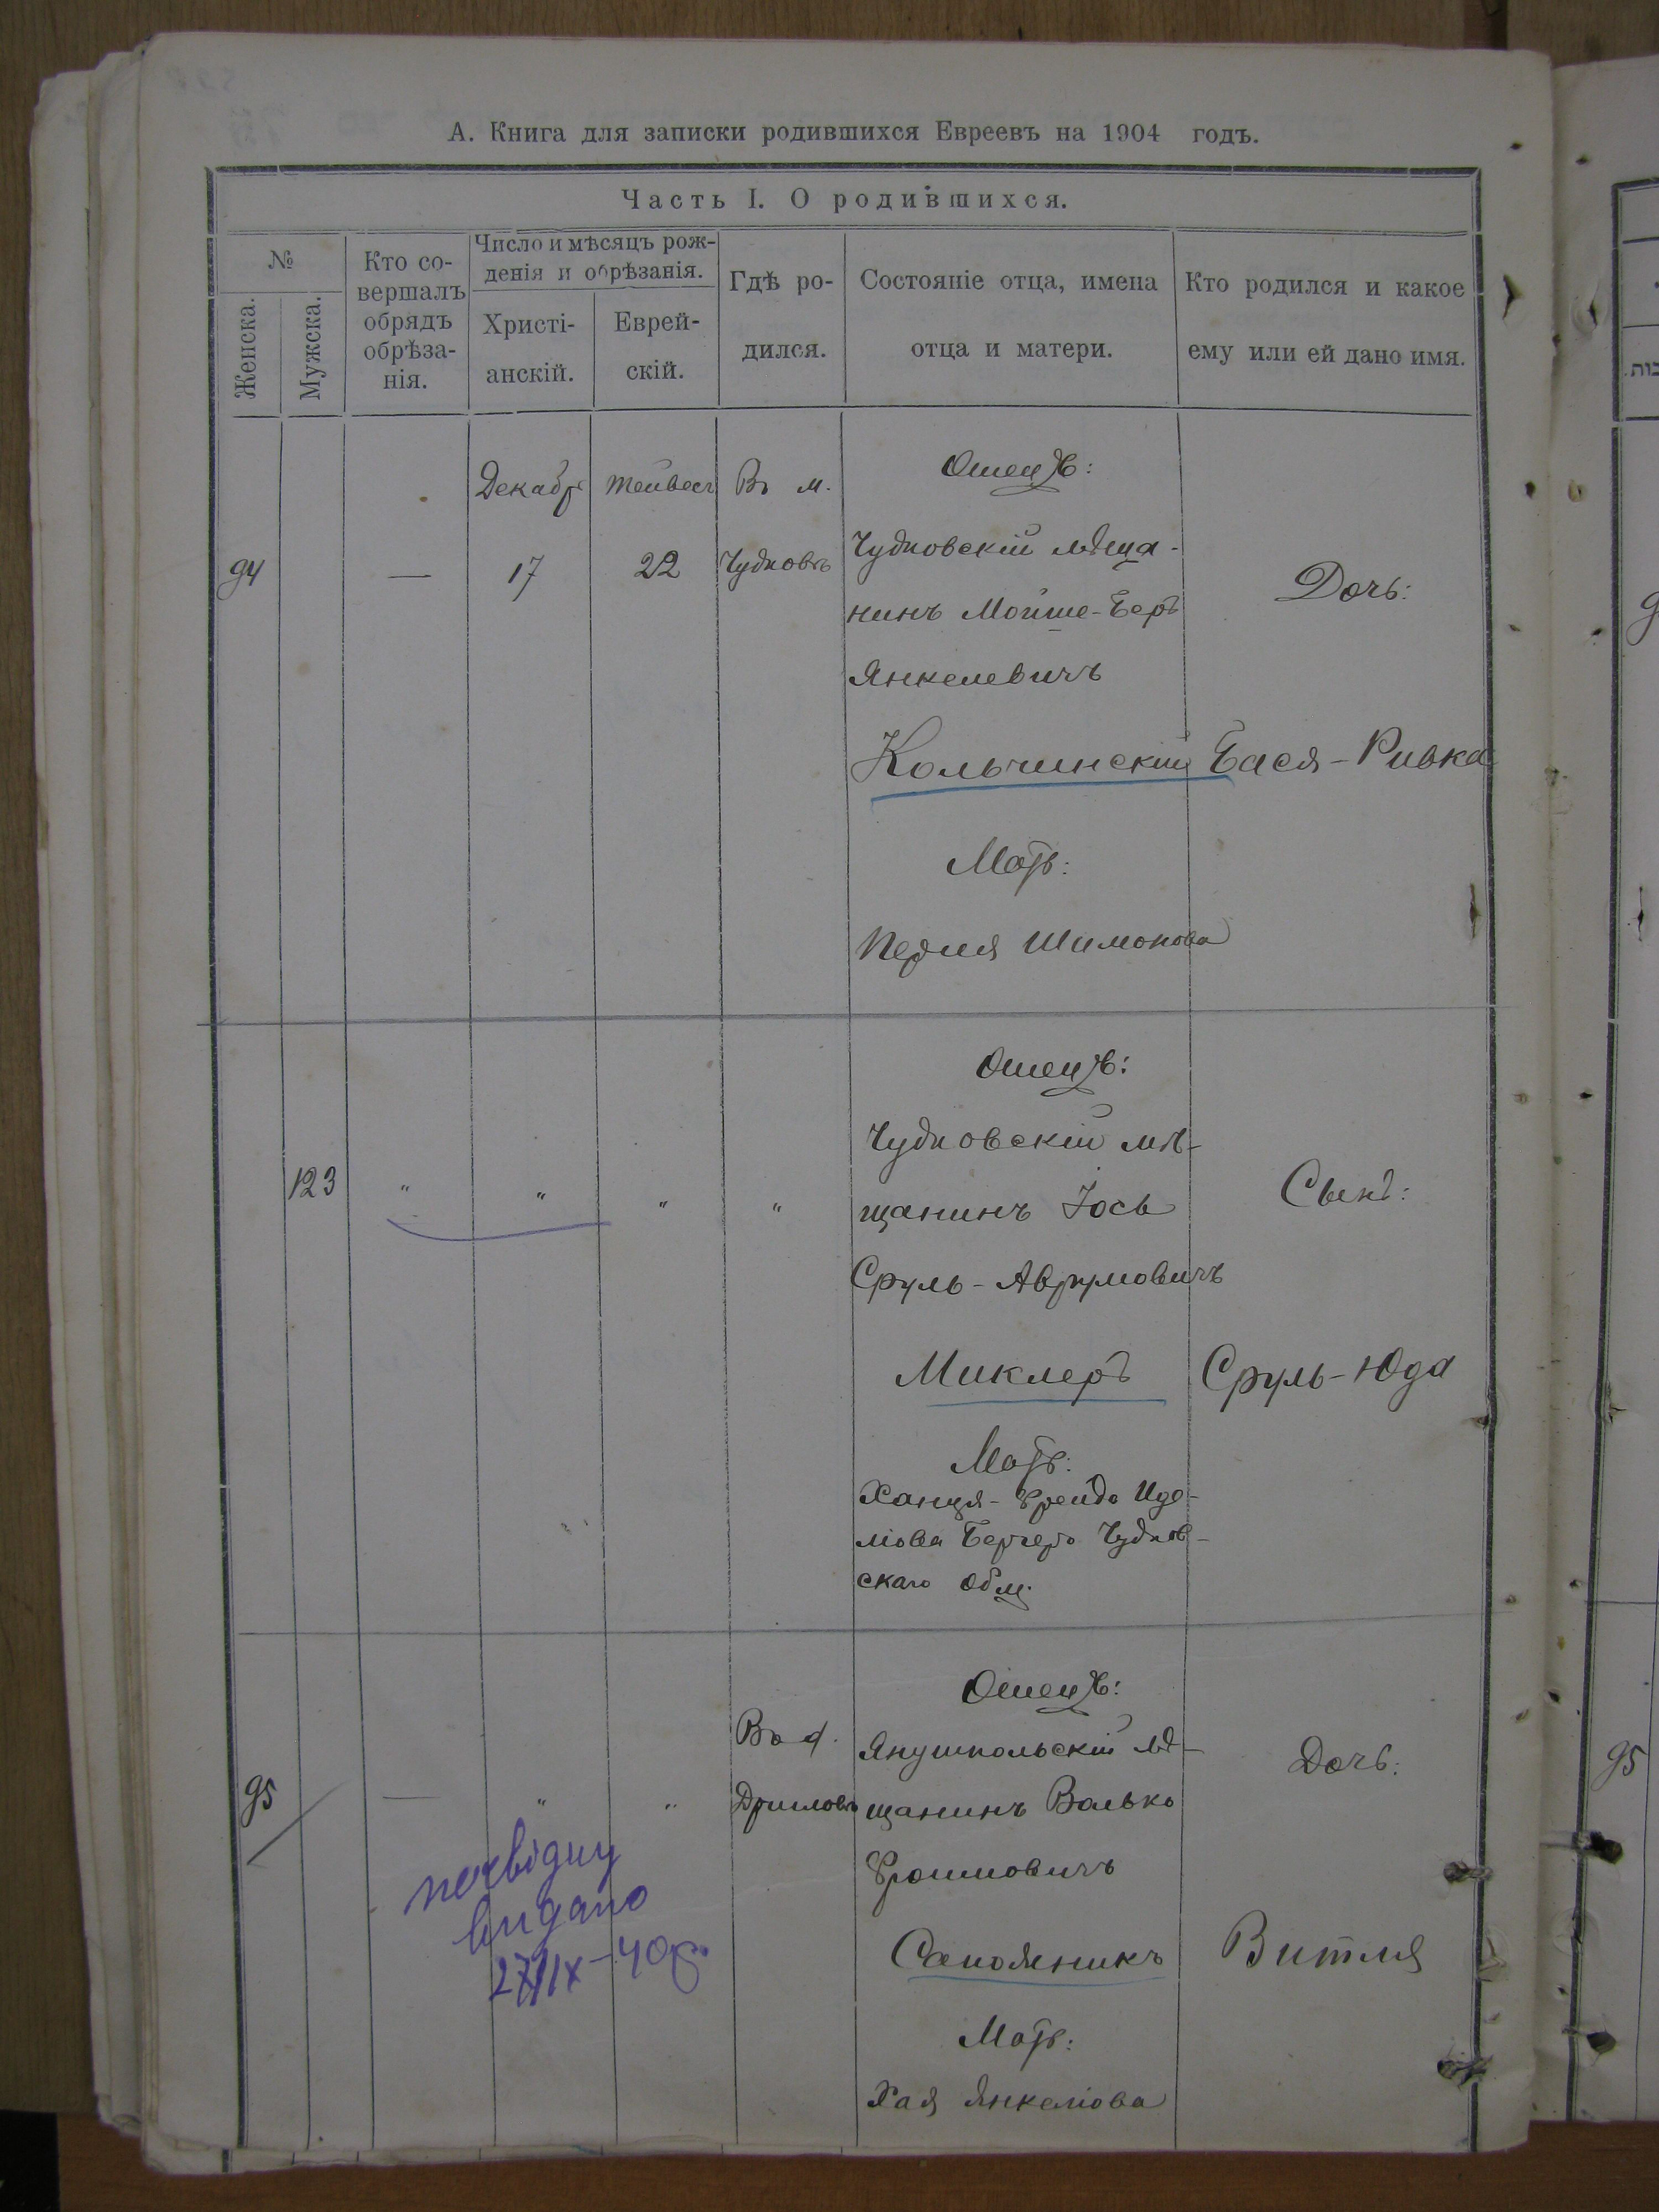 А. Книга для записки родившихся Евреевъ на 1904 годъ.
Часть I. О родившихся.
№
Женска.
Мужска.
Кто со-
вершалъ
обрядъ
обрѣза-
нія.
Число и мѣсяцъ рож-
денія и обрѣзанія.
Христі-
анскій.
Еврей-
скій.
Гдѣ ро-
дился.
Состояніе отца, имена
отца и матери.
Кто родился и какое
ему или ей дано имя.
94
—
Декабр
17
Тейвесъ
22
Въ м.
Чудновъ
Отецъ:
Чудновскій мѣща-
нинъ Мойше-Беръ
Янкелевичъ
Кольчинскій
Мать:
Перля Шимонова
Дочь:
Бася-Ривка
123
"
"
"
"
Отецъ:
Чудновскій мѣ-
щанинъ Іось
Сруль-Аврумовичъ
Миклеръ
Мать:
Ханця-Фрейда
Чуднов-
скаго общ.
Сынъ:
Сруль-Юда
95
—
"
"
Въ д.
Отецъ:
Янушпольскій мѣ-
щанинъ Волько
Фроимовичъ
Сапожникъ
Мать:
Хая Янкелiова
Дочь:
Витля
видано
95